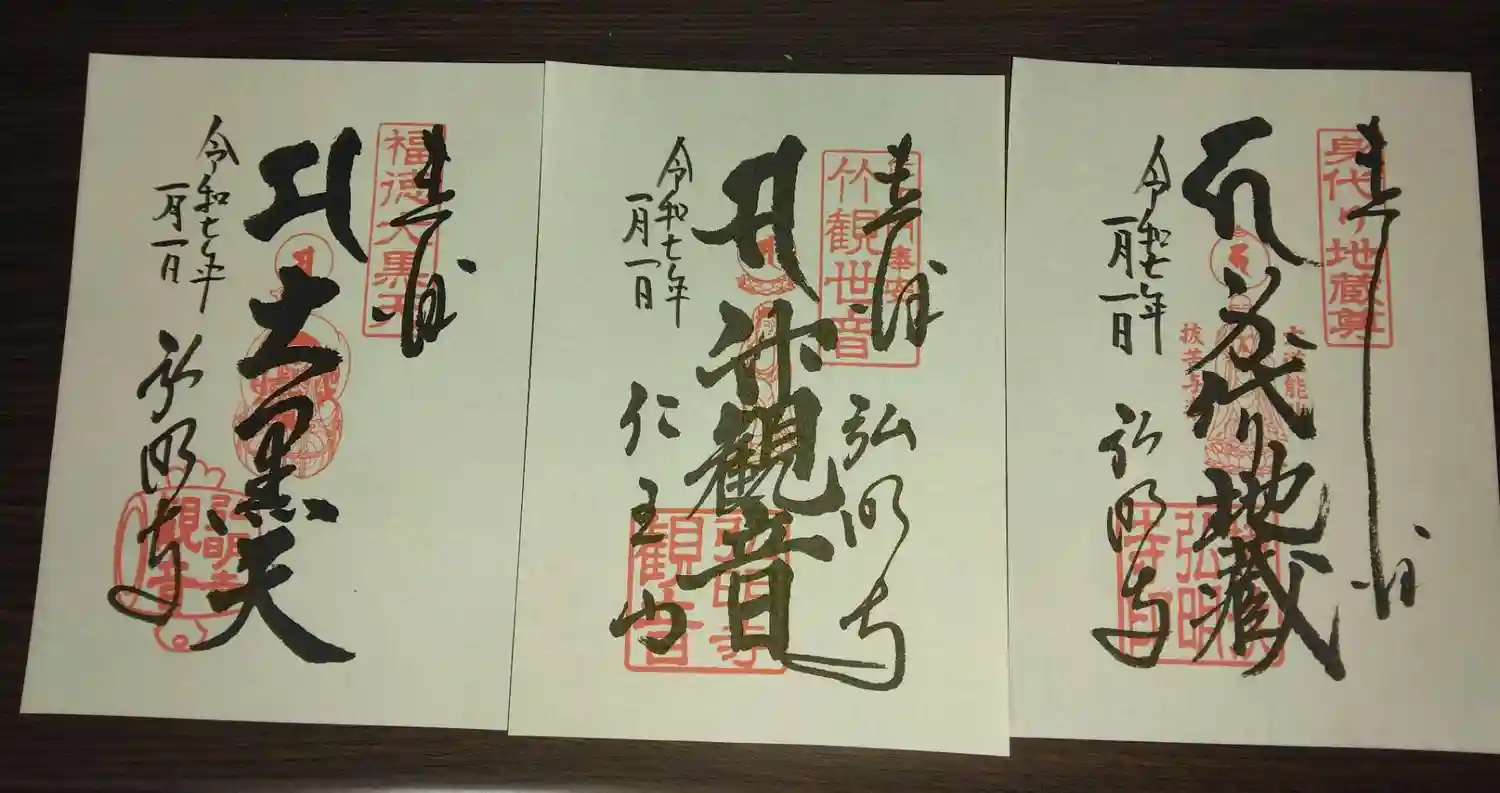 奉拝
福徳大黒天
大黒天
令和七年
一月一日
弘明寺
弘明寺
観音
奉拝
竹観世音
竹観音
令和七年
一月一日
弘明寺
仁王山
弘明寺
観音
奉拝
身代り地蔵尊
身代り地蔵
令和七年
一月一日
弘明寺